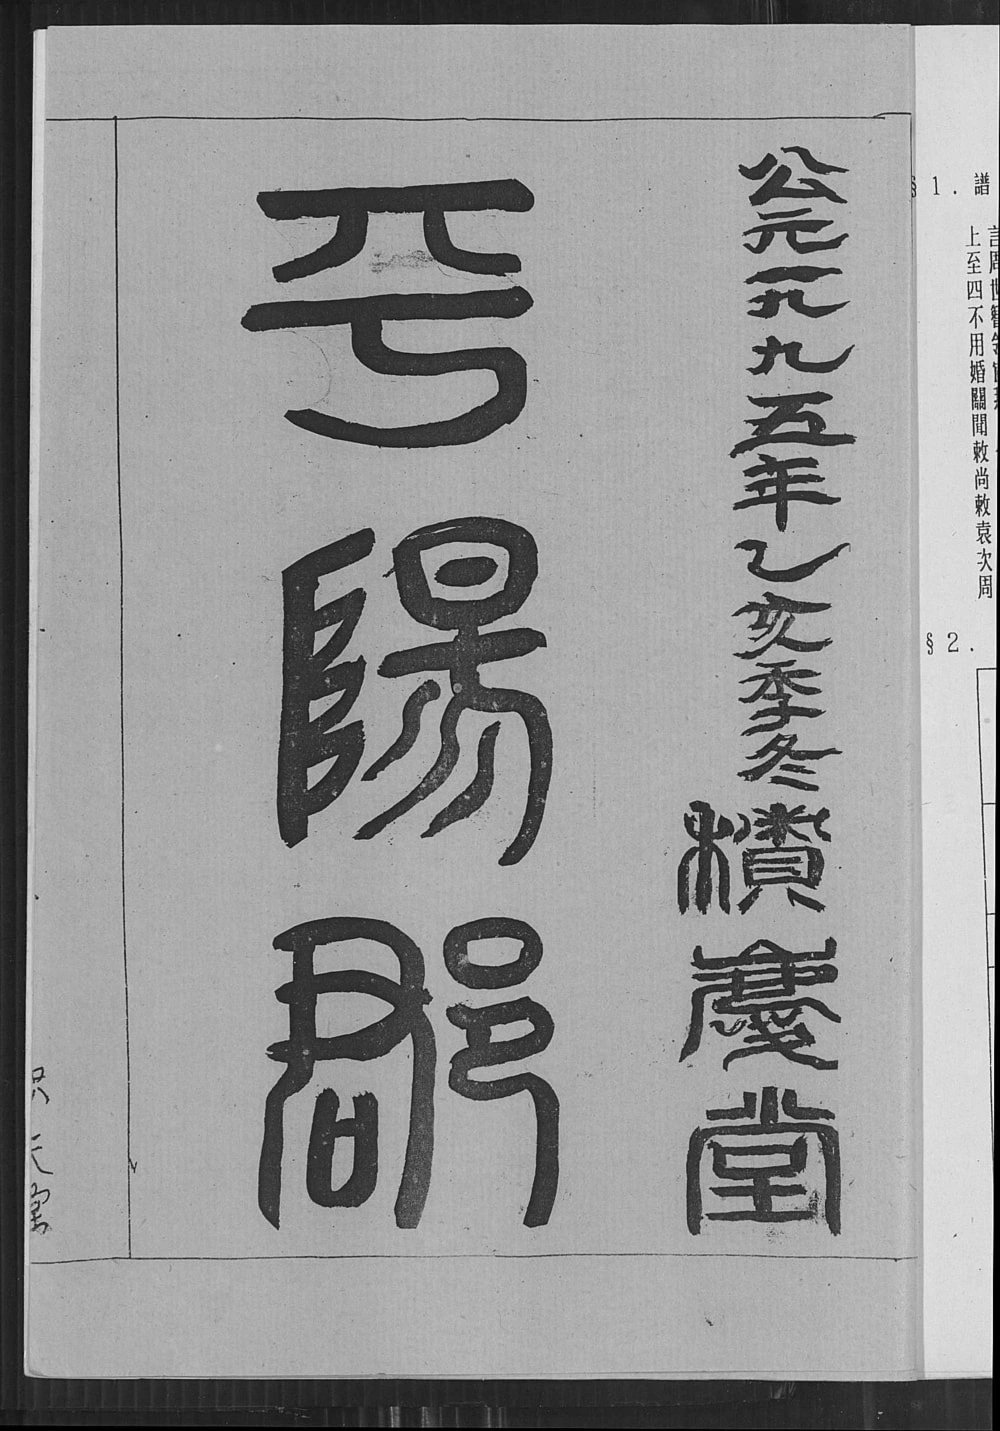 §1. 譜
上至四不用婚關聞敕尚敕袁次周
§2.
公元一九九五年乙亥季冬積慶堂
平陽郡